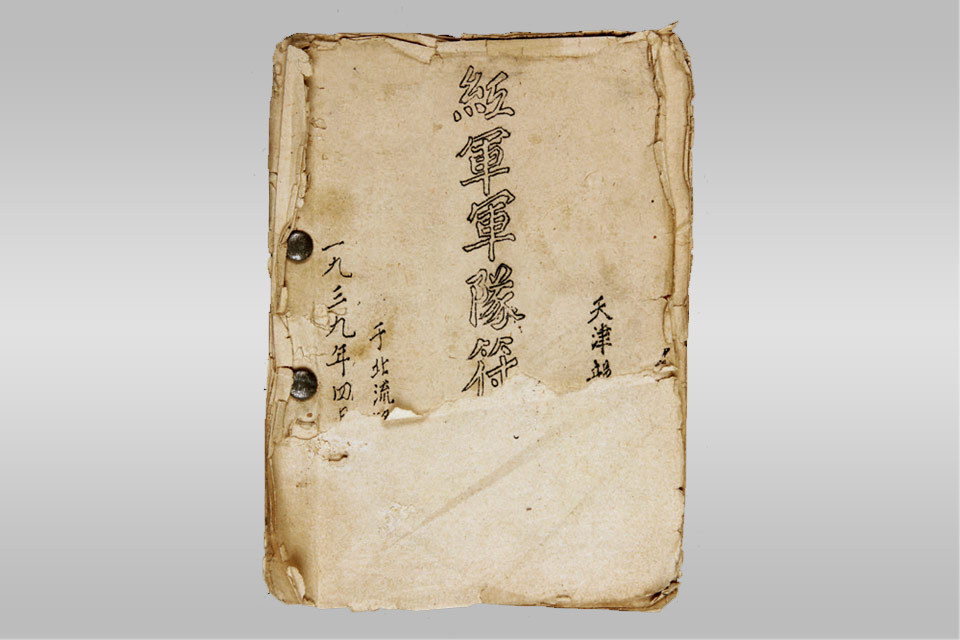 天津
紅軍軍隊符
于北流
一九三九年四月